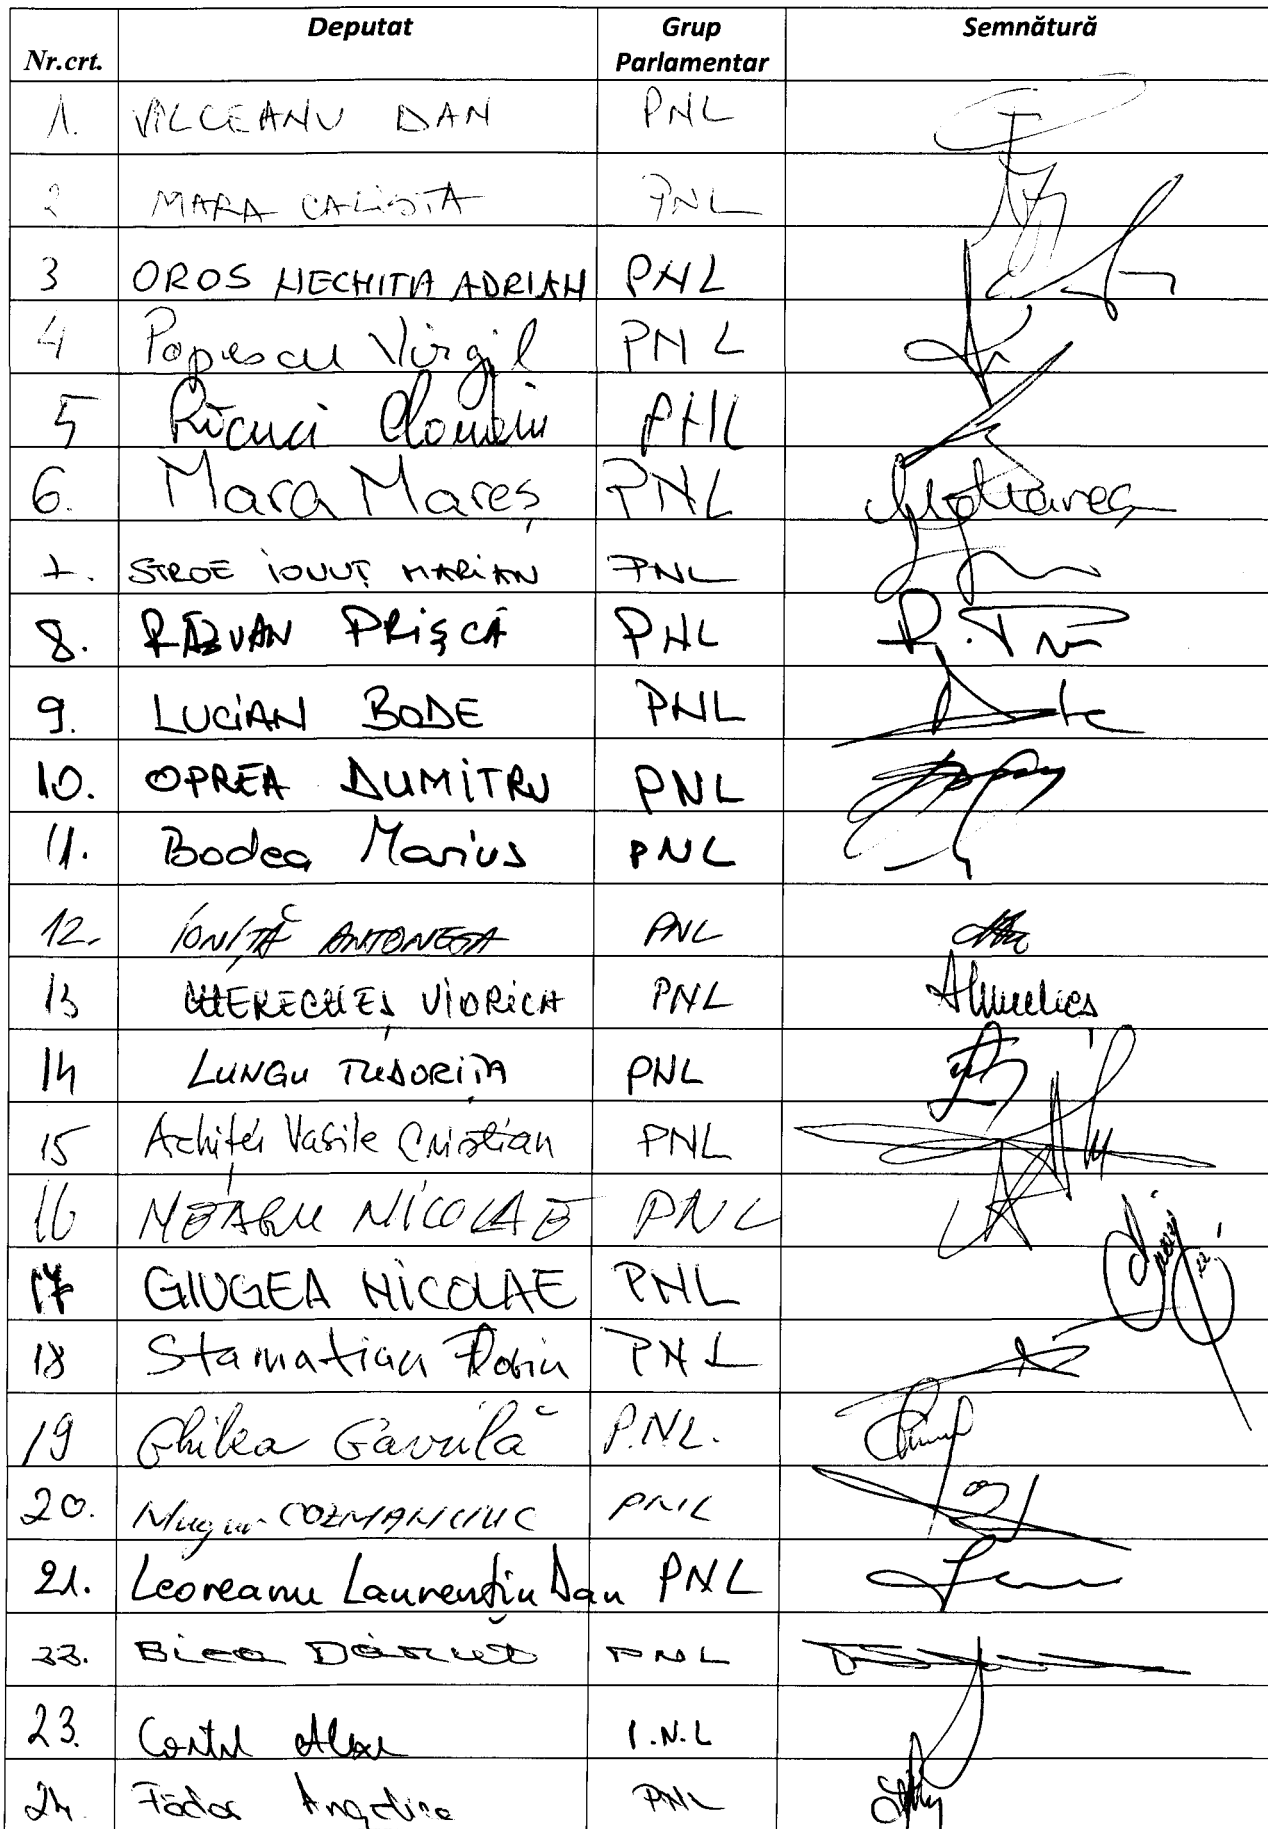 Nr.crt. Deputat Grup Parlamentar Semnătură
1. VÎLCEANU DAN PNL
2 MARA CALISTA PNL
3 OROS NECHITA ADRIAN PNL
4 Popescu Virgil PNL
5 PNL
6. Mara Mareș PNL
7. STROE IONUȚ MARIAN PNL
8. RĂZVAN PRIȘCĂ PNL
9. LUCIAN BODE PNL
10. OPREA DUMITRU PNL
11. Bodea Marius PNL
12. IONIȚĂ ANTONETA PNL
13 CHERECHEȘ VIORICA PNL
14 LUNGU TUDORIȚA PNL
15 Achiței Vasile Cristian PNL
16 NEAGU NICOLAE PNL
17 GIUGEA NICOLAE PNL
18 Stamatian Florin PNL
19 Ghilea Găvrilă P.N.L.
20. Mugur COZMANCIUC PNL
21. Leoreanu Laurențiu Dan PNL
22. Bica PNL
23. P.N.L
24. Fădor Angelica PNL